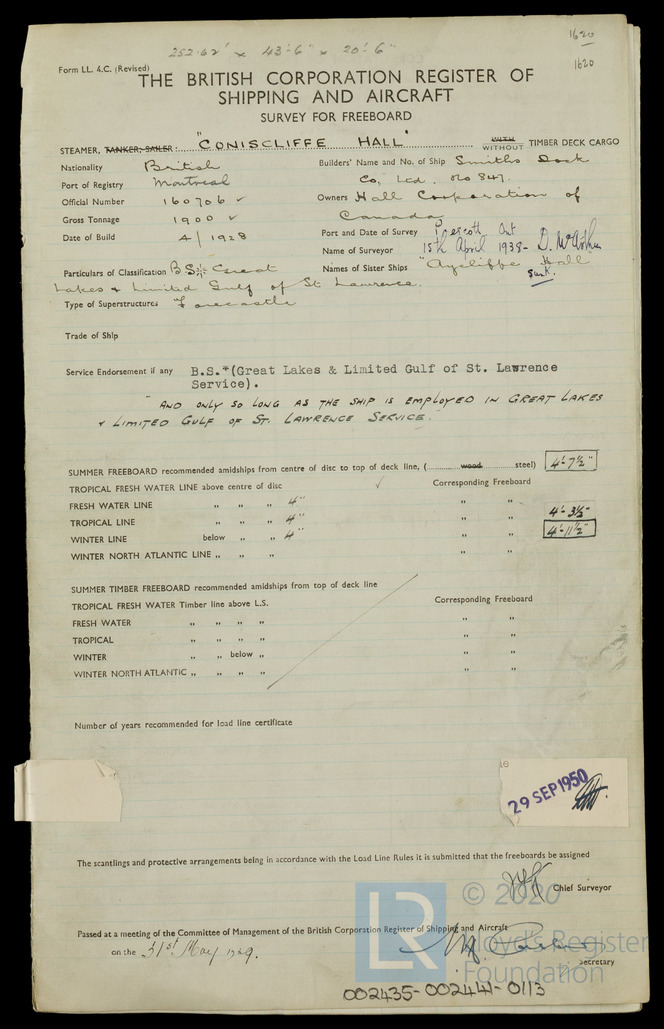 252·62' × 43'-6" × 20'-6"
1620
1620
Form LL. 4.C. (Revised)
THE BRITISH CORPORATION REGISTER OF
SHIPPING AND AIRCRAFT
SURVEY FOR FREEBOARD
STEAMER, TANKER, SAILER: "CONISCLIFFE HALL" WITH WITHOUT TIMBER DECK CARGO
Nationality British
Builders' Name and No. of Ship Smiths Dock
Port of Registry Montreal
Co, Ltd. No 847.
Official Number 160706 ✓
Owners Hall Corporation of
Gross Tonnage 1900 ✓
Canada
Date of Build 4/1928
Port and Date of Survey Prescott, Ont
Name of Surveyor 15th April 1938- D. McArthur
Particulars of Classification B.S.* Great
Names of Sister Ships "Aycliffe Hall
Lakes & Limited Gulf of St Lawrence.
Sunk.
Type of Superstructures Forecastle
Trade of Ship
Service Endorsement if any B.S.*(Great Lakes & Limited Gulf of St. Lawrence
Service).
" AND ONLY SO LONG AS THE SHIP IS EMPLOYED IN GREAT LAKES
& LIMITED GULF OF ST. LAWRENCE SERVICE."
SUMMER FREEBOARD recommended amidships from centre of disc to top of deck line, (........ wood ........ steel) 4'-7½"
TROPICAL FRESH WATER LINE above centre of disc ✓ Corresponding Freeboard
FRESH WATER LINE " " " 4" " "
TROPICAL LINE " " " 4" " " 4'-3½"
WINTER LINE below " " 4" " " 4'-11½"
WINTER NORTH ATLANTIC LINE " " " " "
SUMMER TIMBER FREEBOARD recommended amidships from top of deck line
TROPICAL FRESH WATER Timber line above L.S. Corresponding Freeboard
FRESH WATER " " " " " "
TROPICAL " " " " " "
WINTER " " below " " "
WINTER NORTH ATLANTIC " " " " " "
Number of years recommended for load line certificate
29 SEP 1950
The scantlings and protective arrangements being in accordance with the Load Line Rules it is submitted that the freeboards be assigned
Chief Surveyor
© 2020
LR
Lloyd's Register
Foundation
Passed at a meeting of the Committee of Management of the British Corporation Register of Shipping and Aircraft
on the 31st May 1939.
Secretary
002435-002441-0113